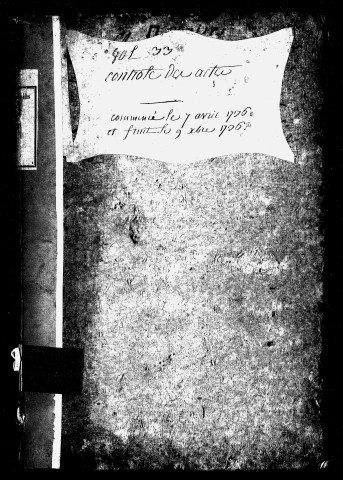 vol 33
controle des actes
commencé le 7 avril 1760
et finit le 9 xbre 1760